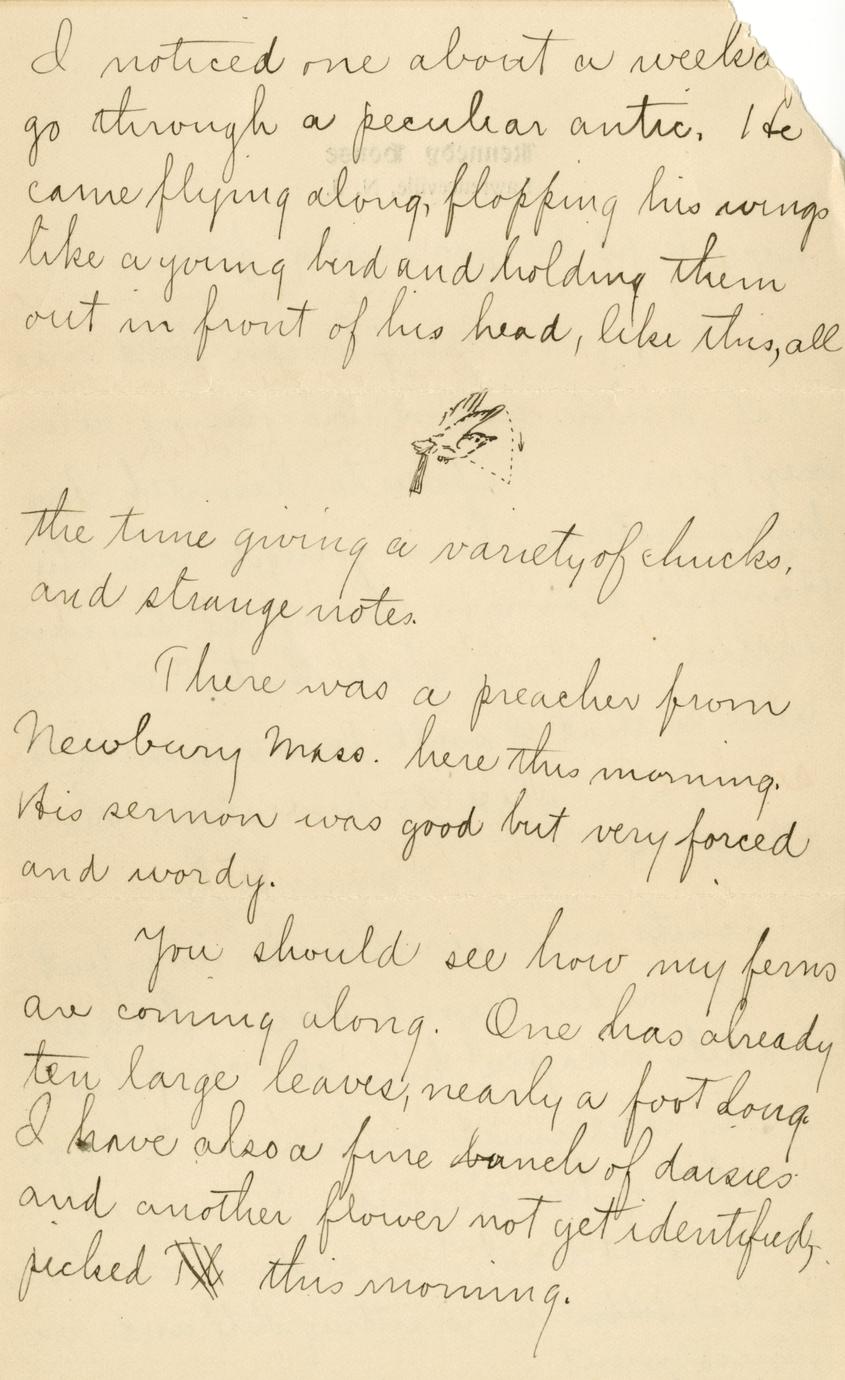 I noticed one about a week a
go through a peculiar antic. He
came flying along, flopping his wings
like a young bird and holding them
out in front of his head, like this, all
the time giving a variety of chucks,
and strange notes.
There was a preacher from
Newbury Mass. here this morning.
His sermon was good but very forced
and wordy.
You should see how my ferns
are coming along. One has already
ten large leaves, nearly a foot long.
I have also a fine bunch of daisies
and another flower not yet identified,
picked this morning.